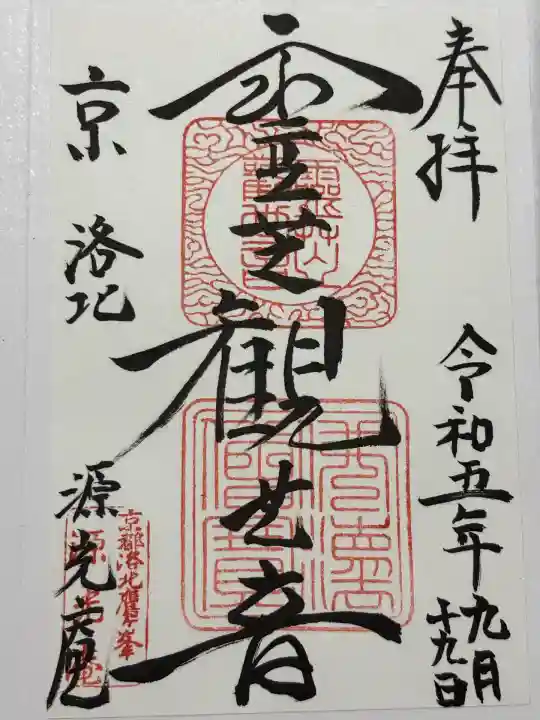 奉拝
令和五年九月
十九日
霊芝観世音
京 洛北
源光菴
京都洛北鷹峯
源光菴